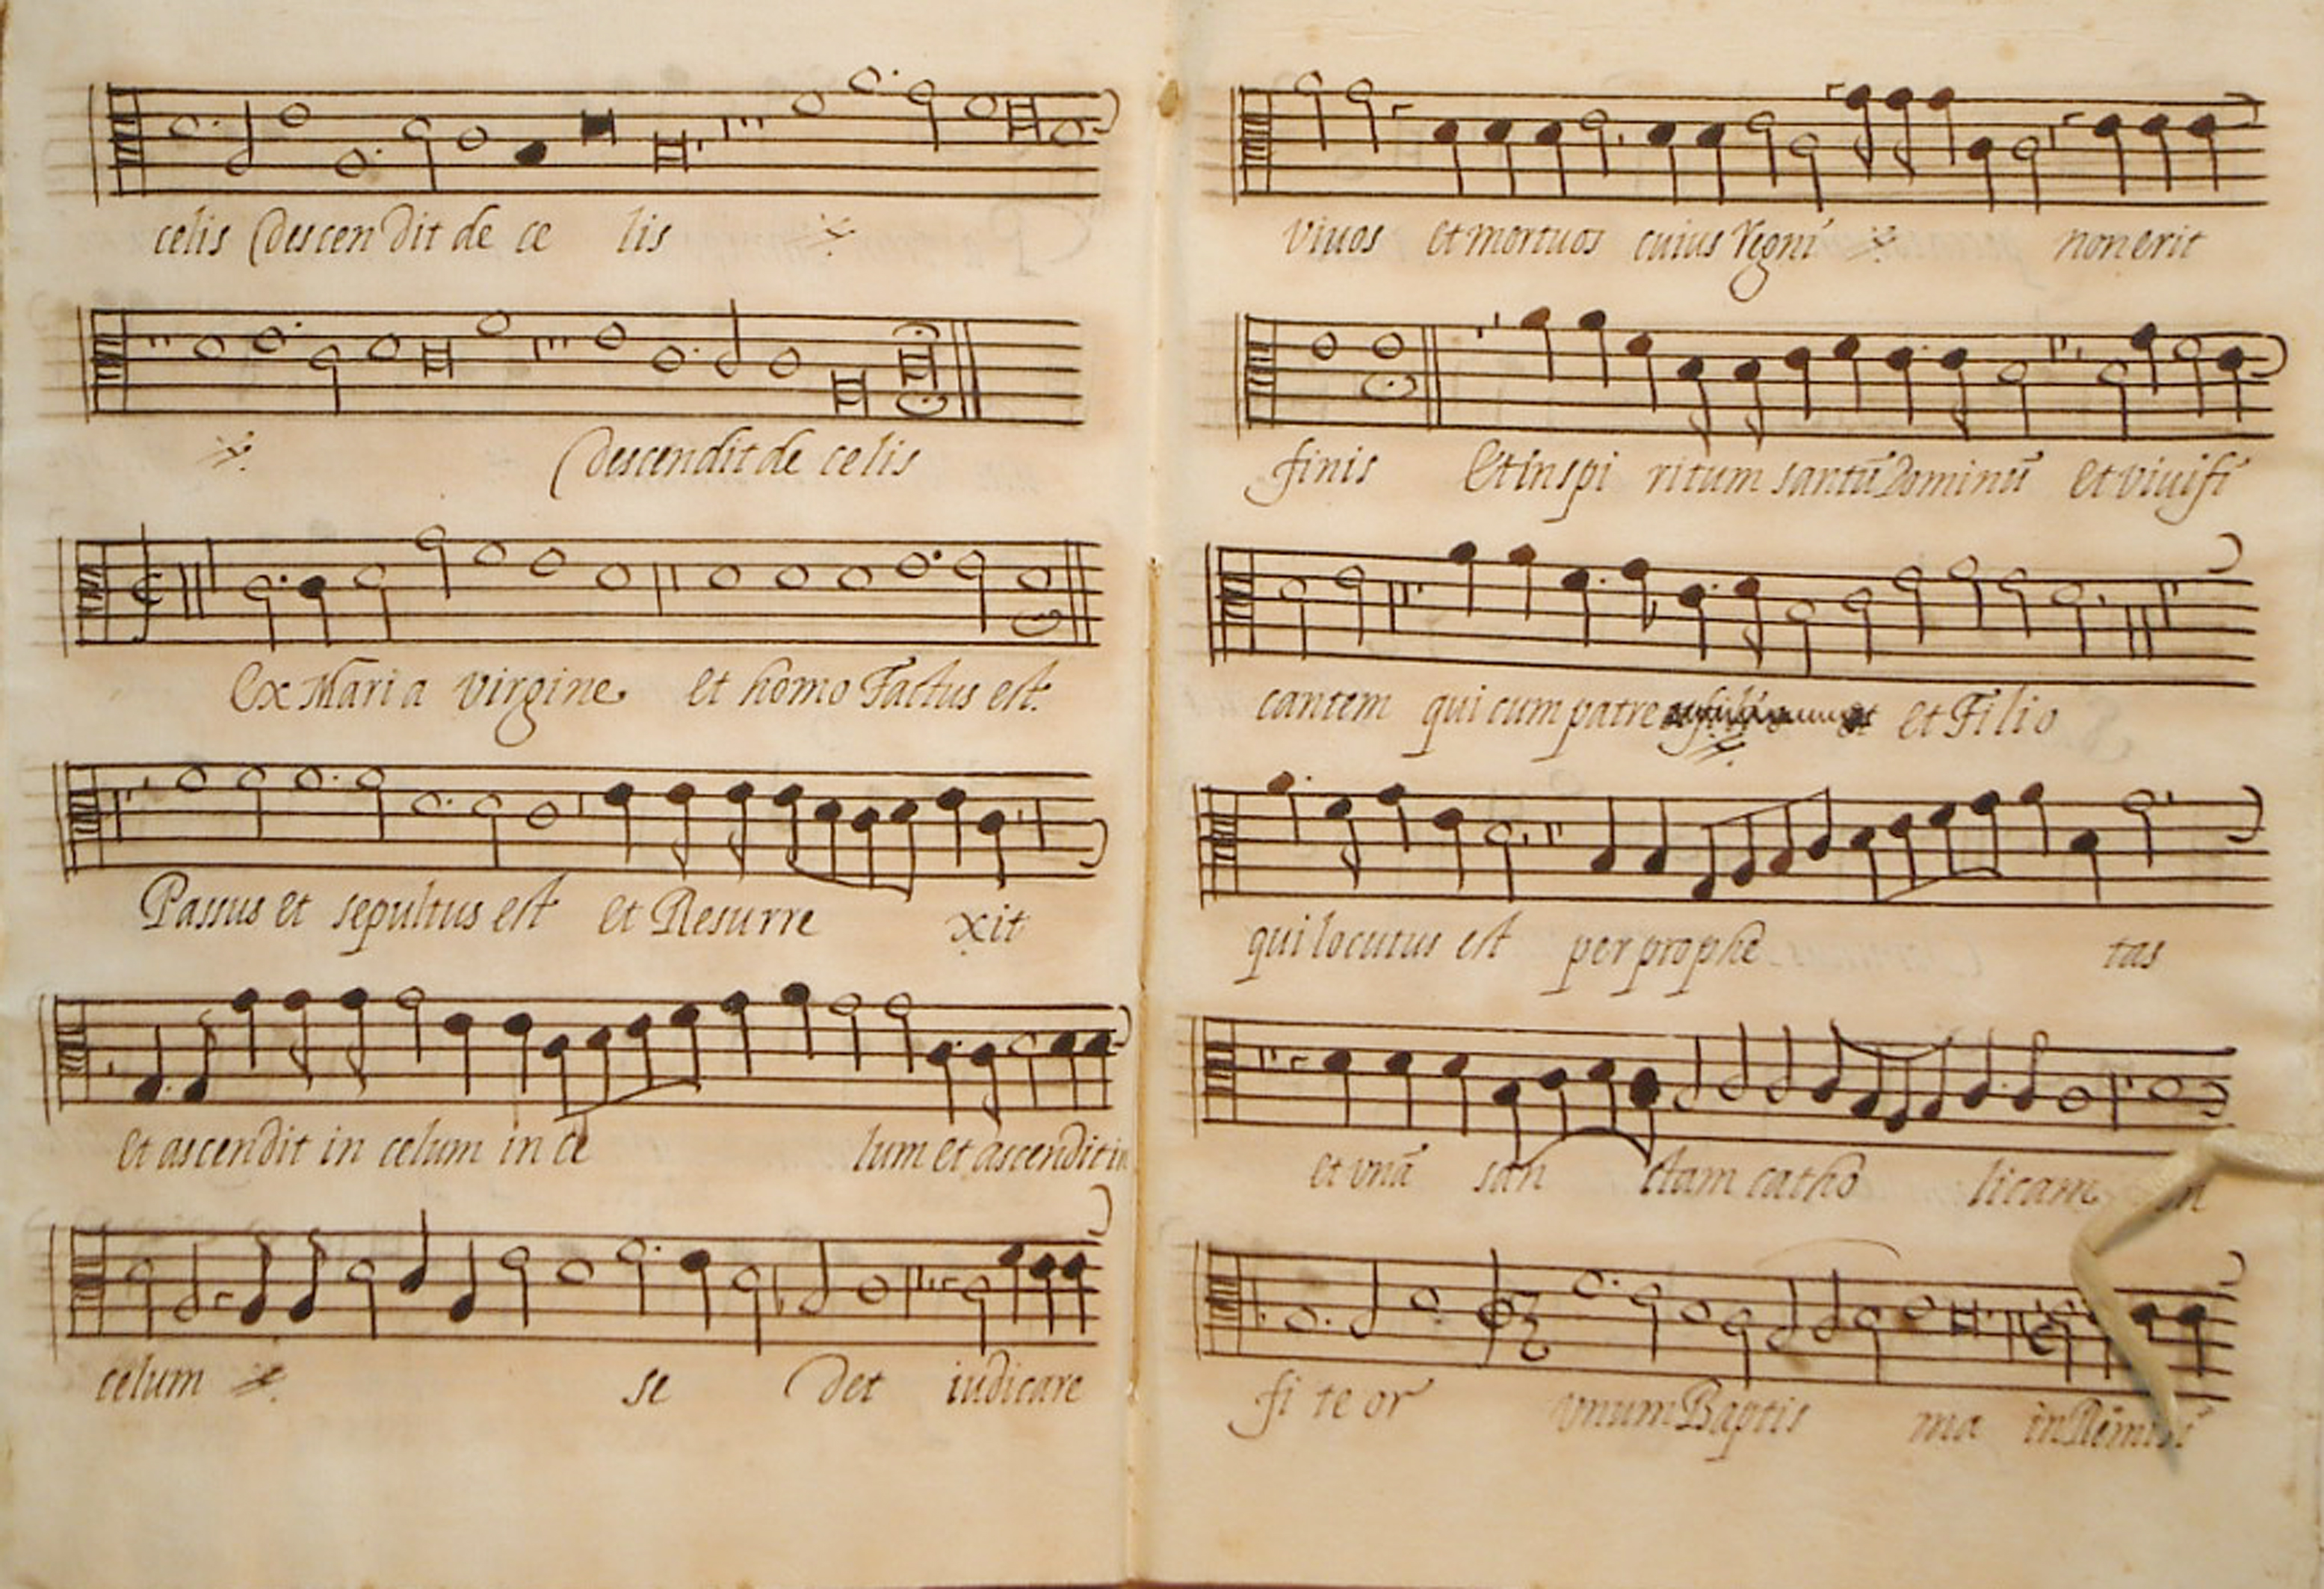 celis Descendit de ce lis
Descendit de celis
Ex Maria virgine et homo Factus est.
Passus et sepultus est et Resurre xit
et ascendit in celum in ce lum et ascendit in
celum se det iudicare
vivos et mortuos cuius Regni non erit
finis Et in spi ritum santū Dominū et vivifi
cantem qui cum patre et Filio
qui locutus est per prophe tas
et unā san ctam catho licam
fi te or unum Baptis ma in Remissi